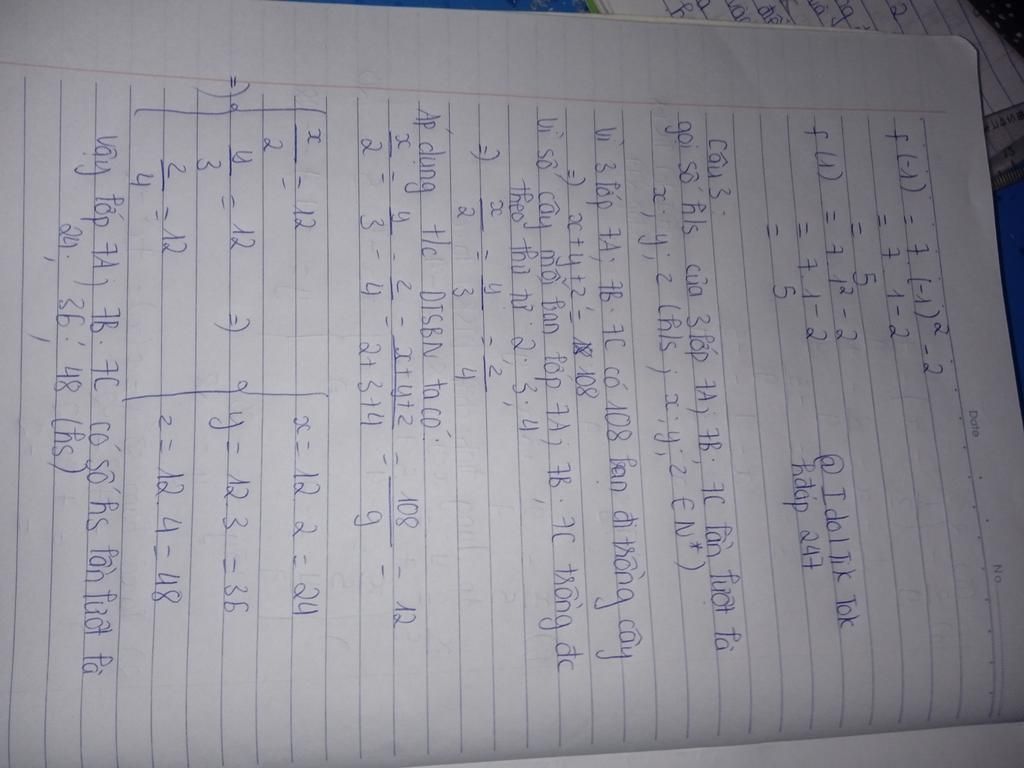 Date
No.
f(-1) = 7 (-1)² - 2
= 7 1 - 2
= 5
f(1) = 7 1² - 2
= 7 1 - 2
= 5
@ Idol Tik Tok
hdáp 247
Câu 3.
gọi số hs của 3 lớp 7A; 7B; 7C lần lượt là
x; y; z (hs; x; y; z ∈ N*)
Vì 3 lớp 7A; 7B; 7C có 108 bạn đi trồng cây
=) x+y+z = 108
Vì số cây mỗi bạn lớp 7A; 7B; 7C trồng đc
theo thứ tự 2; 3; 4
=) x/2 = y/3 = z/4
Áp dụng t/c DTSBN ta có:
x/2 = y/3 = z/4 = x+y+z/2+3+4 = 108/9 = 12
=) { x/2 = 12
y/3 = 12
z/4 = 12
=) { x = 12 2 = 24
y = 12 3 = 36
z = 12 4 = 48
Vậy lớp 7A; 7B; 7C có số hs lần lượt là
24; 36; 48 (hs)